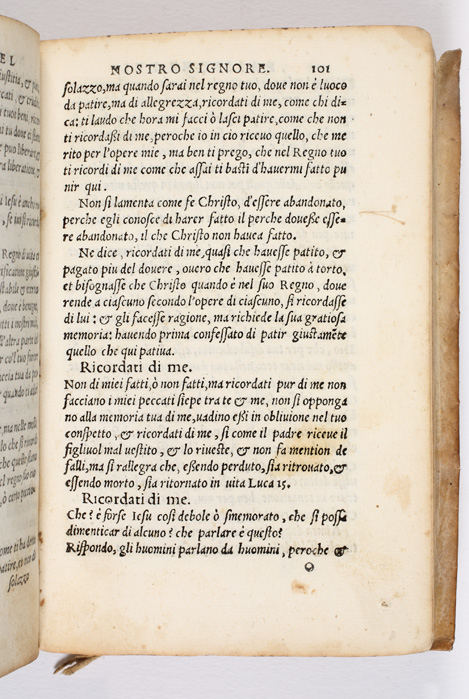 EL
NOSTRO SIGNORE. 101
solazzo, ma quando sarai nel regno tuo, doue non è luoco
da patire, ma di allegrezza, ricordati di me, come chi di=
ca: ti laudo che hora mi facci ò lasci patire, come che non
ti ricordaßi di me, peroche io in cio riceuo quello, che me
rito per l'opere mie, ma ben ti prego, che nel Regno tuo
ti ricordi di me come che assai ti basti d'hauermi fatto pu
nir qui.
Non si lamenta come fe Christo, d'essere abandonato,
perche egli conosce di hauer fatto il perche doueße esse=
re abandonato, il che Christo non hauea fatto.
Ne dice, ricordati di me, quasi che hauesse patito, &
pagato piu del douere, ouero che hauesse patito à torto,
et bisognasse che Christo quando è nel suo Regno, doue
rende a ciascuno secondo l'opere di ciascuno, si ricordasse
di lui: & gli facesse ragione, ma richiede la sua gratiosa
memoria: hauendo prima confessato di patir giustamẽte
quello che qui patiua.
Ricordati di me.
Non di miei fatti, ò non fatti, ma ricordati pur di me non
facciano i miei peccati siepe tra te & me, non si oppongа
no alla memoria tua di me, uadino eßi in obliuione nel tuo
conspetto, & ricordati di me, si come il padre riceue il
figliuol mal uestito, & lo riueste, & non fa mention de
falli, ma si rallegra che, eßendo perduto, sia ritrouato, &
essendo morto, sia ritornato in uita Luca 15.
Ricordati di me.
Che? è forse Iesu cosi debole ò smemorato, che si possa
dimenticar di alcuno? che parlare è questo?
Rispondo, gli huomini parlano da huomini, peroche &
solazzo